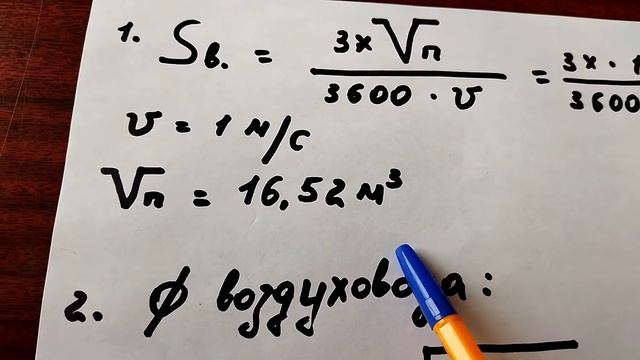 1. Sв. = 3x Vп / 3600 · v = 3x · 1 / 3600
v = 1 м/с
Vп = 16,52 м³
2. ϕ воздуховода: